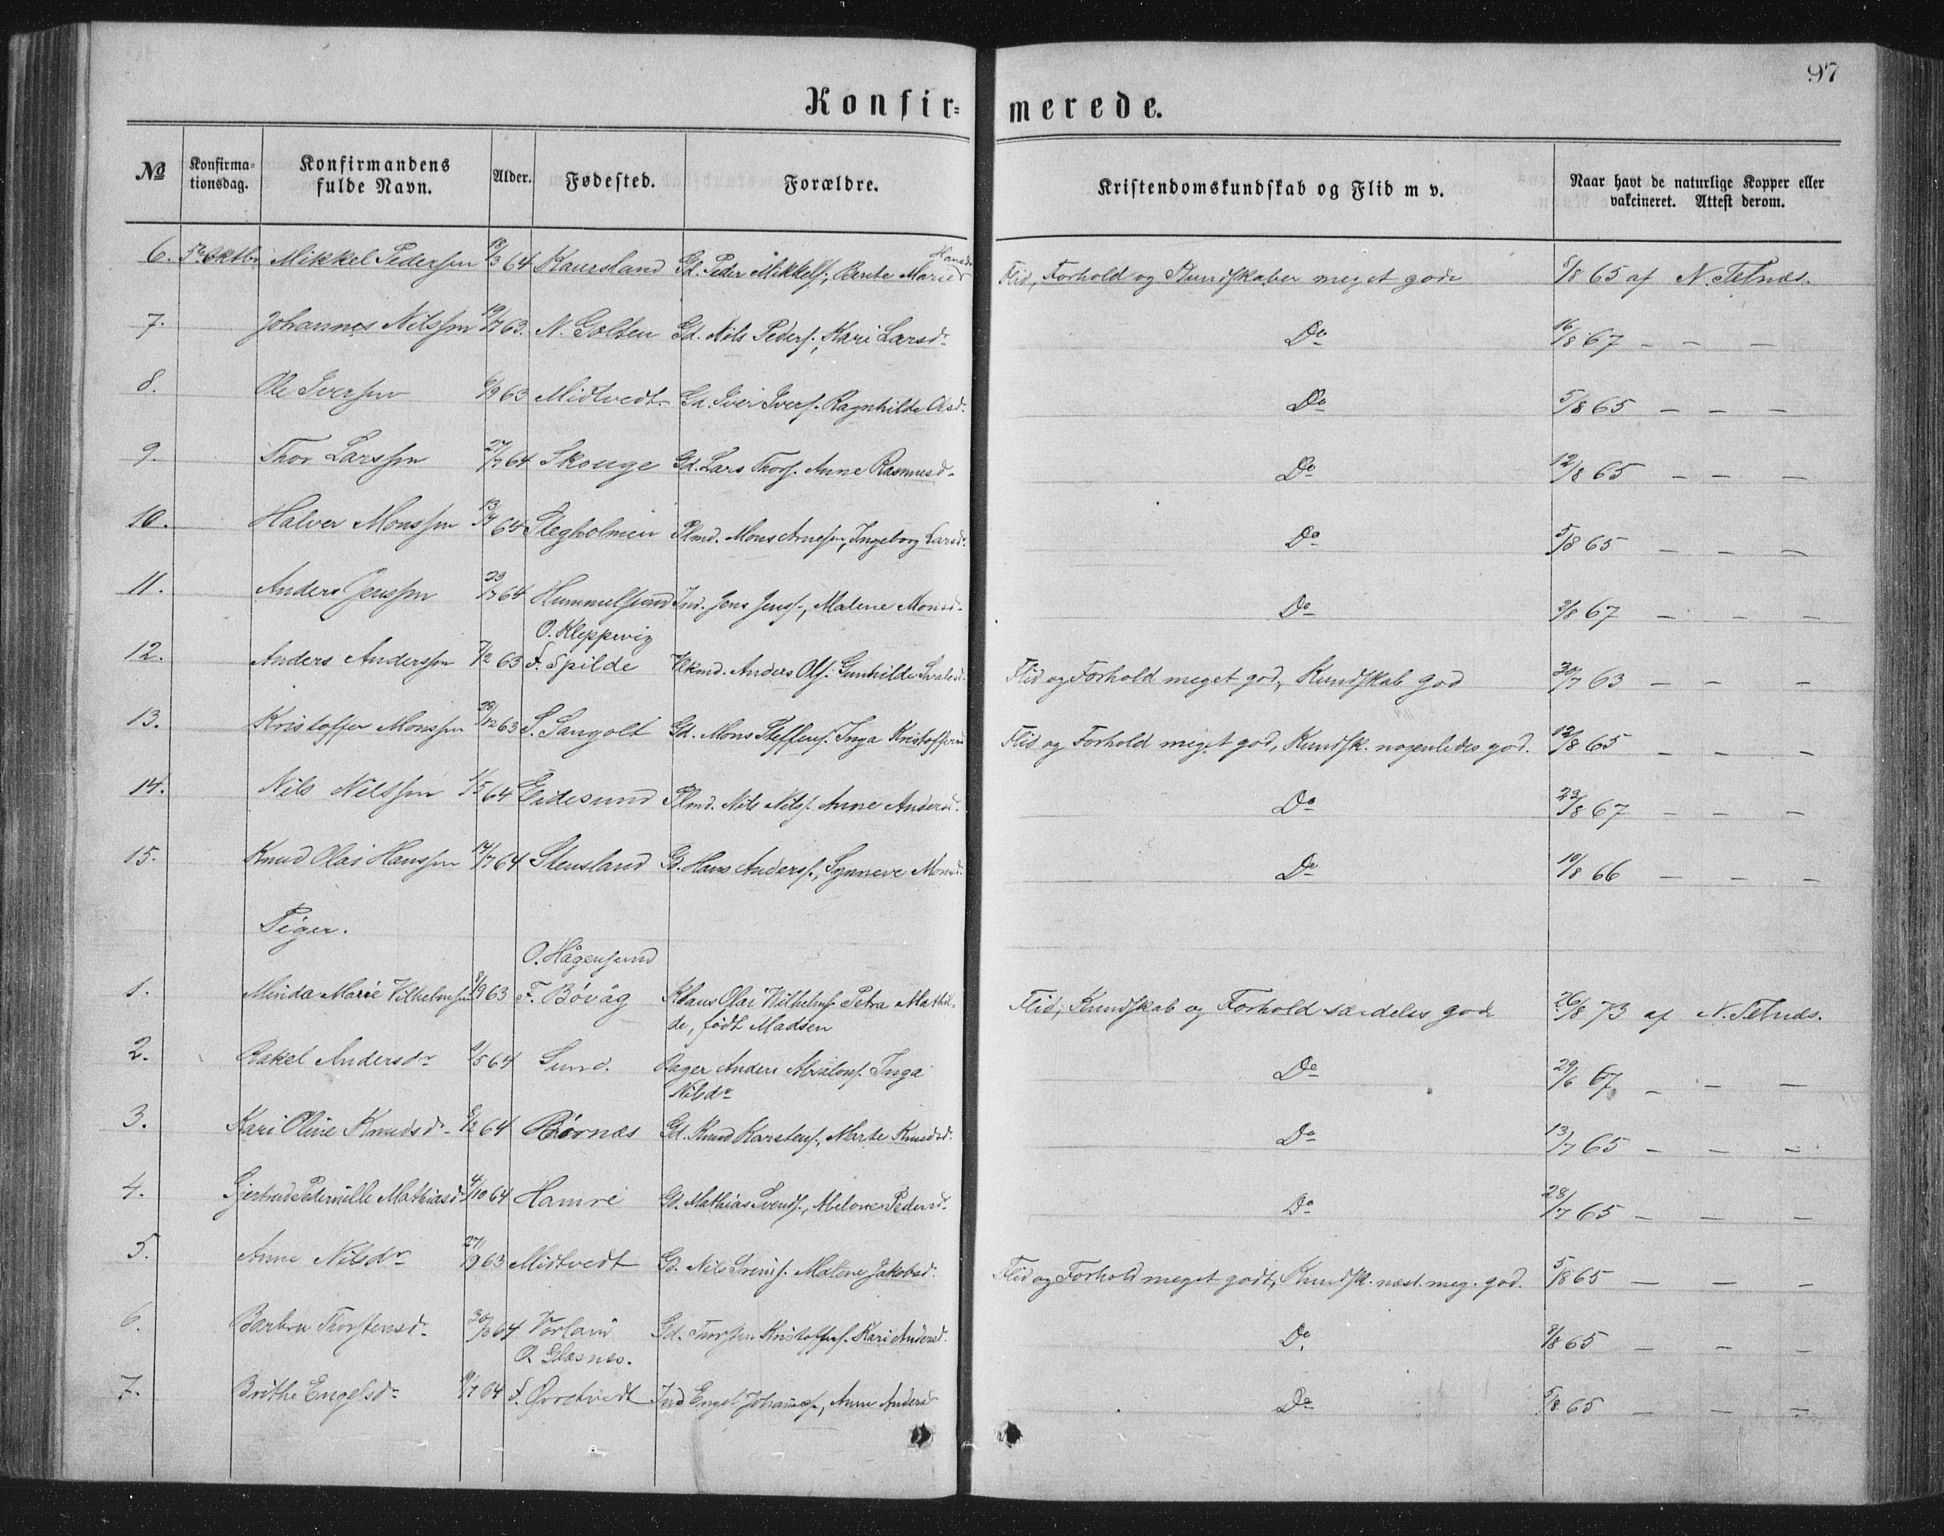 97
Konfir=merede.
№ Konfirma=tionsdag. Konfirmandens fulde Navn. Alder. Fødested. Forældre. Kristendomskundskab og Flid m v. Naar havt de naturlige Kopper eller vakcineret. Attest derom.
6. 5te Oktbr Mikkel Pedersen 18/3 64 Kausland Gd. Peder Mikkels., Berte Marie Hansdr Flid, Forhold og Kundskaber meget gode 5/8 65 af N. Telnæs.
7. Johannes Nilssen 63. N. Golten Gd. Nils Peders., Kari Larsdr Do 16/8 67 — — —
8. Ole Iverssen 6/9 63 Midtvedt Gd. Iver Ivers. Ragnhilde Do 5/8 65 — — —
9. Thor Larssen 27/7 64 Skouge Gd. Lars Thors. Anne Rasmusd. Do 12/8 65 — — —
10. Halver Monssen 13/ 64 Stegholmen Plmd. Mons Arnessen, Ingeborg Larsd. Do 5/8 65 — — —
11. Anders Jenssen 23/7 64 Hummelsund Ind. Jens Jenss., Malene Monsd. Do 2/8 67 — — —
O. Kleppevig
12. Anders Anderssen 7/2 63 F. Spilde Anders Ols. Gunhilde Flid og Forhold meget god, Kundskab god 30/7 63 — — —
13. Kristoffer Monssen 23/12 63 S. Sangolt Gd. Mons Steffens. Inga Kristoffersd Flid og Forhold meget god, Kundsk. nogenledes god. 12/8 65 — — —
14. Nils Nilssen 1/5 64 Eidesund Plmd. Nils Nilss. Anne Andersd. Do 23/8 67 — — —
15. Knud Olai Hanssen 14/7 64 Stensland Gd. Hans Anderss., Synneve Monsd. Do 10/8 66 — — —
Piger.
O. Hågensund
1. Minda Marie Vilhelmsen 8/9 63 F. Bøvåg Klaus Olai Vilhelms. Petra Mathil- Flid, Kundskab og Forhold særdeles god 26/8 73 af N. Telnæs.
de, født Madsen
2. Rakel Andersdr 1/5 64 Sund. Bager Anders Inga Do 29/6 67 — — —
Nilsdr
3. Kari Oline Knudsdr 64 Børnes Gd. Knud Karstens., Marte Knudsd. Do 13/7 65 — —
4. Gjertrud Peternille Mathiasd 4/10 64 Hamre Gd. Mathias Svends., Pedersd. Do 28/7 65 — — —
5. Anne Nilsdr 27/9 63 Midtvedt Gd. Nils Malene Jakobsd. Flid og Forhold meget godt, Kundsk. næst. meg. god. 5/8 65 — — —
6. Barbru Thorstensdr 64 Vorland Gd. Thorsten Kristoffers. Kari Andersd. Do 8/8 65 — — —
O. Glæsnes.
7. Brithe Engelsdr 64 F. Ind Engel Johanness., Anne Andersd Do 5/8 65 — — —